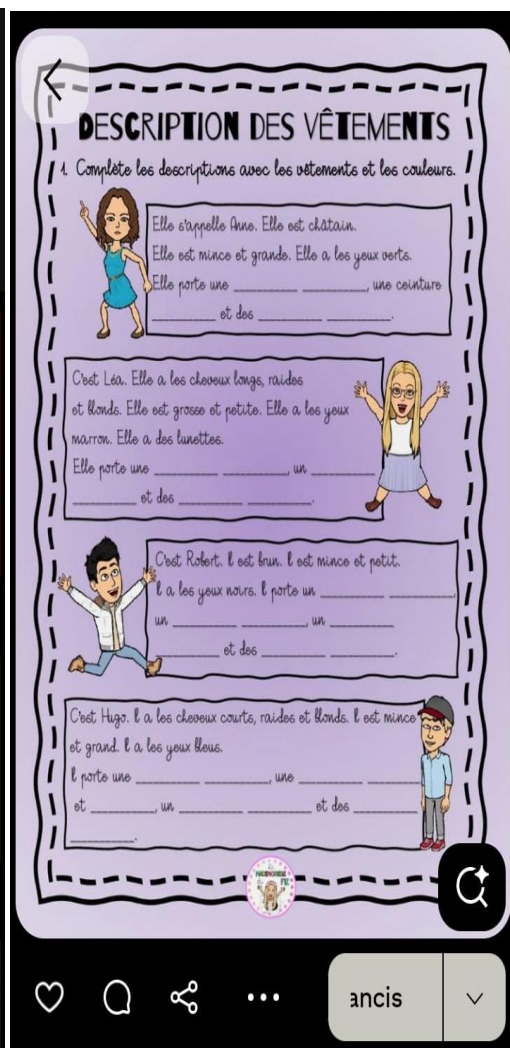 DESCRIPTION DES VÊTEMENTS
1. Complète les descriptions avec les vêtements et les couleurs.
Elle s'appelle Anne. Elle est châtain.
Elle est mince et grande. Elle a les yeux verts.
Elle porte une __________ __________, une ceinture
__________ et des __________ __________.
C'est Léa. Elle a les cheveux longs, raides
et blonds. Elle est grosse et petite. Elle a les yeux
marron. Elle a des lunettes.
Elle porte une __________ __________, un __________
__________ et des __________ __________.
C'est Robert. Il est brun. Il est mince et petit.
Il a les yeux noirs. Il porte un __________ __________,
un __________ __________, un __________
__________ et des __________ __________.
C'est Hugo. Il a les cheveux courts, raides et blonds. Il est mince
et grand. Il a les yeux bleus.
Il porte une __________ __________, une __________ __________
et __________, un __________ __________ et des __________
__________.
ancis